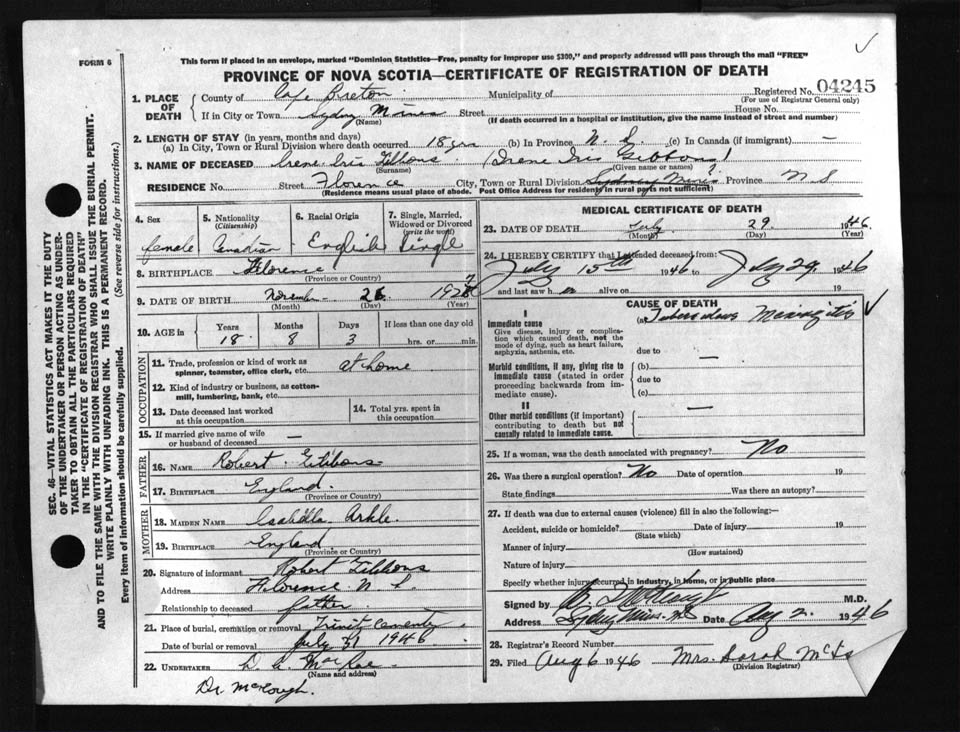 This form if placed in an envelope, marked "Dominion Statistics—Free, penalty for improper use $300," and properly addressed will pass through the mail "FREE"
FORM 6
PROVINCE OF NOVA SCOTIA—CERTIFICATE OF REGISTRATION OF DEATH
Registered No. 04245
(For use of Registrar General only)
1. PLACE OF DEATH
County of Cape Breton Municipality of
If in City or Town Sydney Mines Street House No.
(Name) (If death occurred in a hospital or institution, give the name instead of street and number)
2. LENGTH OF STAY (in years, months and days)
(a) In City, Town or Rural Division where death occurred 18 yrs (b) In Province N. S. (c) In Canada (if immigrant) —
3. NAME OF DECEASED Irene Iris Gibbons (Irene Iris Gibbons)
(Surname) (Given name or names)
RESIDENCE No. Street Florence City, Town or Rural Division Sydney Mines Province N S
(Residence means usual place of abode. Post Office Address for residents in rural parts not sufficient)
4. Sex female
5. Nationality (Citizenship) Canadian
6. Racial Origin English
7. Single, Married, Widowed or Divorced (write the word) Single
8. BIRTHPLACE Florence
(Province or Country)
9. DATE OF BIRTH November 26 1927
(Month) (Day) (Year)
10. AGE in Years Months Days If less than one day old
18 8 3 hrs. or min.
OCCUPATION
11. Trade, profession or kind of work as spinner, teamster, office clerk, etc. at home
12. Kind of industry or business, as cotton-mill, lumbering, bank, etc.
13. Date deceased last worked at this occupation
14. Total yrs. spent in this occupation
15. If married give name of wife or husband of deceased —
FATHER
16. NAME Robert Gibbons
17. BIRTHPLACE England
(Province or Country)
MOTHER
18. MAIDEN NAME Isabella Arkle.
19. BIRTHPLACE England
(Province or Country)
20. Signature of informant Robert Gibbons
Address Florence N S
Relationship to deceased father
21. Place of burial, cremation or removal Trinity cemetery
Date of burial or removal July 31 1946
22. UNDERTAKER D. A. MacRae
(Name and address)
Dr. McKeough.
MEDICAL CERTIFICATE OF DEATH
23. DATE OF DEATH July 29 1946
(Month) (Day) (Year)
24. I HEREBY CERTIFY that I attended deceased from:
July 15th 1946 to July 29, 1946
and last saw h alive on 19
CAUSE OF DEATH
I
Immediate cause
Give disease, injury or complication which caused death, not the mode of dying, such as heart failure, asphyxia, asthenia, etc.
(a) Tuberculous Meningitis
due to —
Morbid conditions, if any, giving rise to immediate cause (stated in order proceeding backwards from immediate cause).
(b)
due to
(c)
II
Other morbid conditions (if important) contributing to death but not causally related to immediate cause.
25. If a woman, was the death associated with pregnancy? No
26. Was there a surgical operation? No Date of operation 19
State findings Was there an autopsy?
27. If death was due to external causes (violence) fill in also the following:—
Accident, suicide or homicide? Date of injury 19
(State which)
Manner of injury
(How sustained)
Nature of injury
Specify whether injury occurred in industry, in home, or in public place
Signed by M.D.
Address Sydney Mines N.S. Date Aug 2. 1946
28. Registrar's Record Number
29. Filed Aug 6 1946 Mrs. Sarah
(Division Registrar)
SEC. 46—VITAL STATISTICS ACT MAKES IT THE DUTY
OF THE UNDERTAKER OR PERSON ACTING AS UNDERTAKER TO OBTAIN ALL THE PARTICULARS REQUIRED
IN THE "CERTIFICATE OF REGISTRATION OF DEATH"
AND TO FILE THE SAME WITH THE DIVISION REGISTRAR WHO SHALL ISSUE THE BURIAL PERMIT.
WRITE PLAINLY WITH UNFADING INK. THIS IS A PERMANENT RECORD.
Every item of information should be carefully supplied. (See reverse side for instructions.)